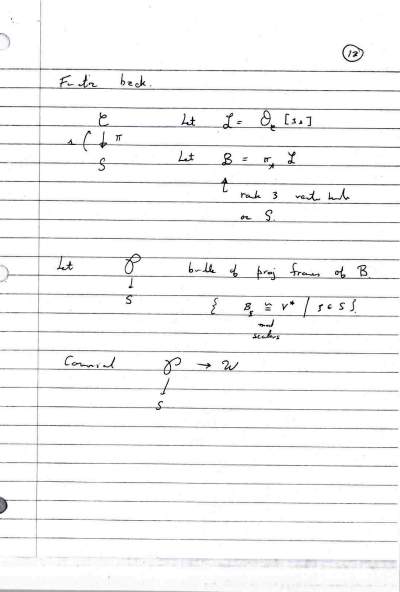 (12)
Further back.
C Let L = O_C [3s]
s ( ↓ π
S Let B = π_* L
↑
rank 3 vector bundle
on S.
Let P bundle of proj frames of B.
↓
S { B_s ≅ V* | s ∈ S }.
mod
scalars
Canonical P → W
↓
S